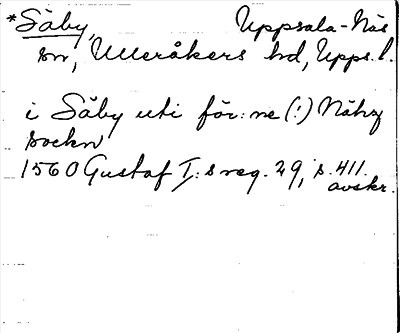 *Såby, Uppsala-Näs
sn, Ulleråkers hd, Upps. l.
i Såby uti för:ne (!) Nähz
sockn
1560 Gustaf I:s reg. 29, s. 411.
avskr.